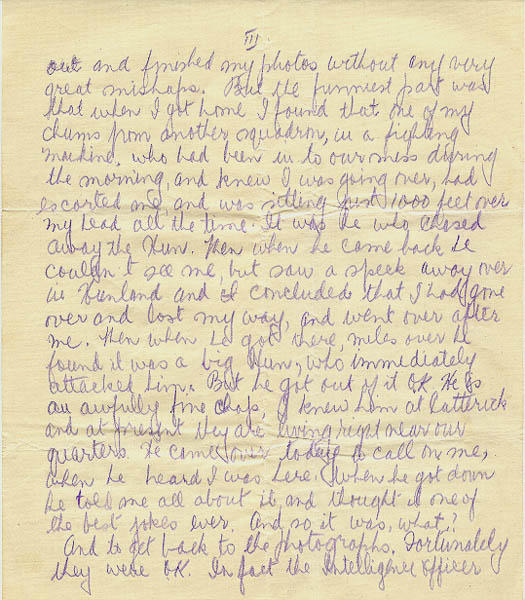 III.
out and finished my photos without any very
great mishaps. But the funniest part was
that when I got home I found that one of my
chums from another squadron, in a fighting
machine, who had been in to our mess during
the morning, and knew I was going over, had
escorted me, and was sitting just 1000 feet over
my head all the time. It was he who chased
away the Hun. Then when he came back he
couldn't see me, but saw a speck away over
in Hunland and concluded that I had gone
over and lost my way, and went over after
me. Then when he got there, miles over he
found it was a big Hun, who immediately
attacked him. But he got out of it OK. He is
an awfully fine chap, I knew him at Catterick
and at present they are living right near our
quarters. He came over today to call on me,
when he heard I was here. When he got down
he told me all about it, and thought it one of
the best jokes ever. And so it was, what?
And to get back to the photographs. Fortunately
they were OK. In fact the Intelligence Officer